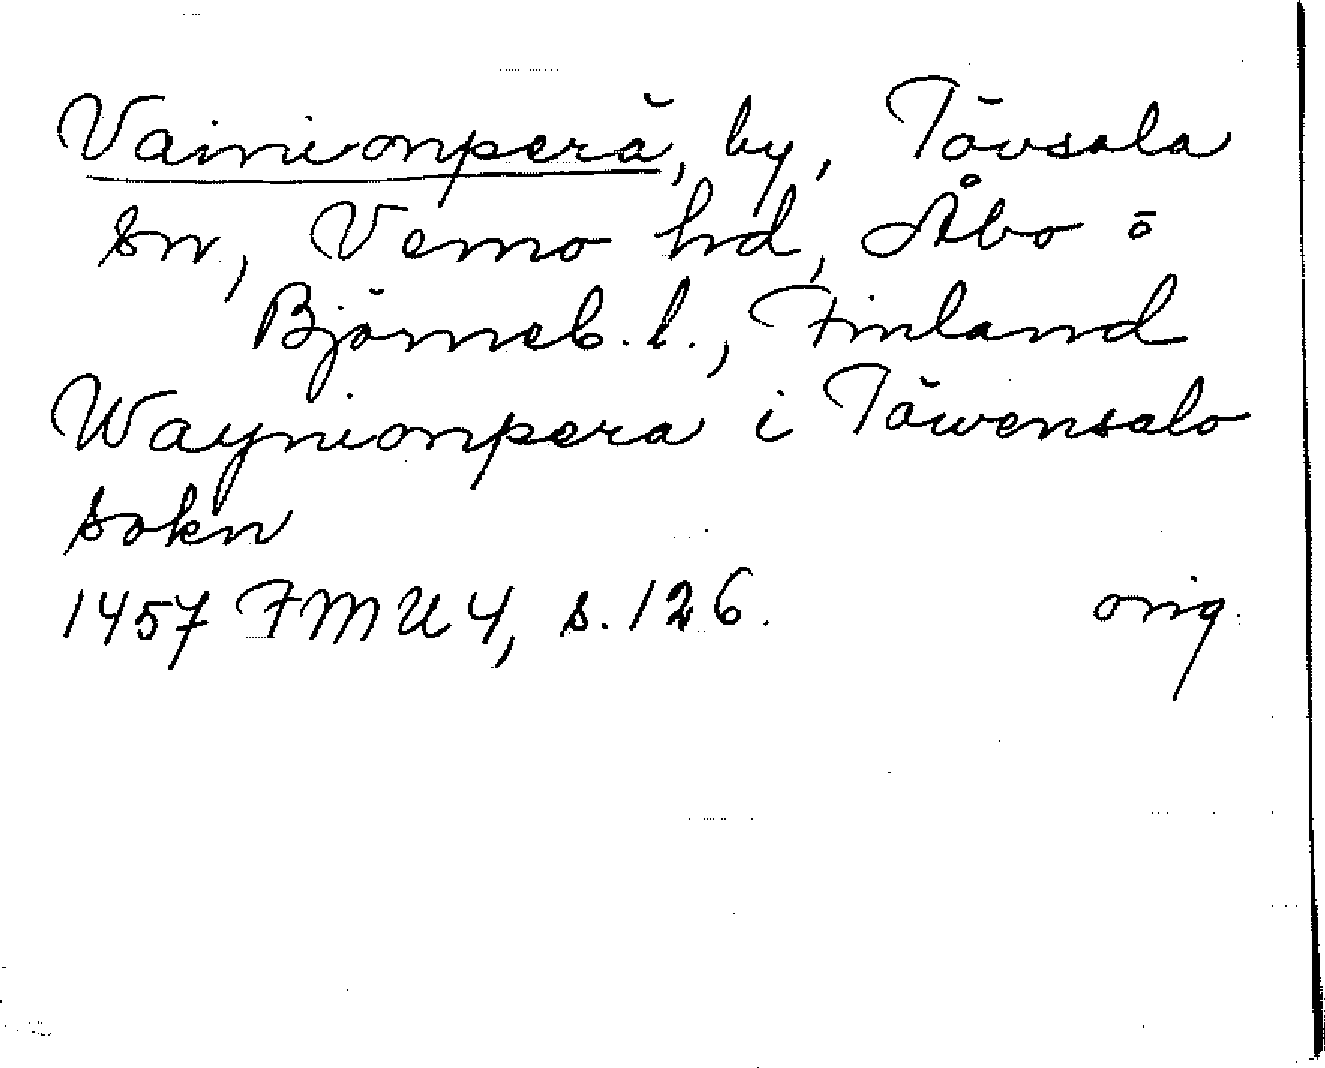 Vainionperä, by, Tövsala
sn, Vemo hd, Åbo o
Björneb. l., Finland
Waynionpera i Töwensalo
sokn
1457 FMU 4, s. 126. orig.